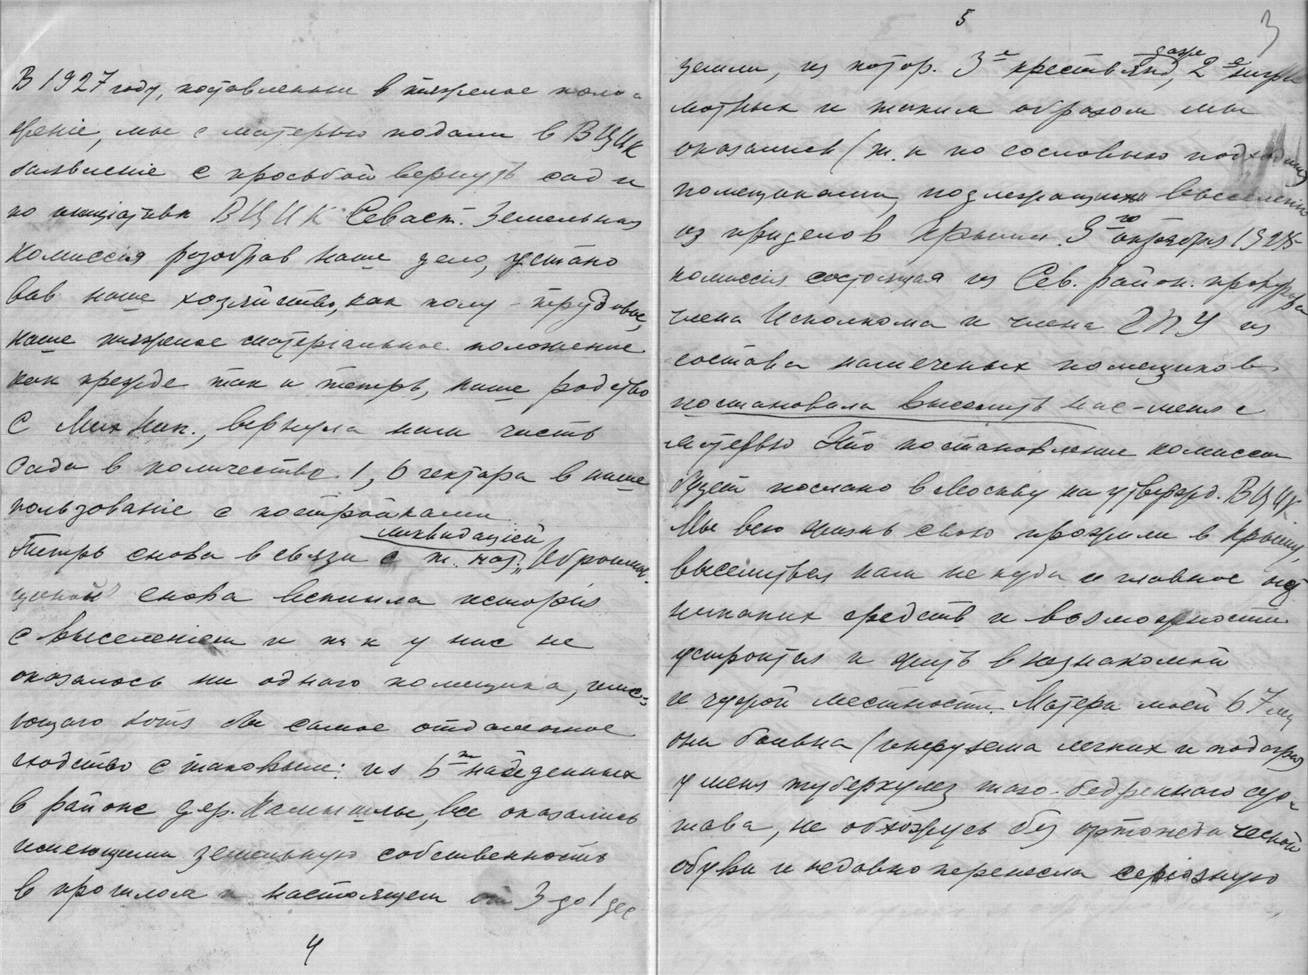 В 1927 году, поставленные в тяжелое поло-
жение, мы с матерью подали в ВЦИК
заявление с просьбой вернуть сад и
по инициативе ВЦИК Севаст. Земельная
Комиссия разобрав наше дело, устано
вив наше хозяйство, как полу-трудовое,
наше тяжелое матерiальное положение
как прежде так и теперь, наше родство
с Мих Ник., вернула нам часть
сада в количестве 1,6 гектара в наше
пользованiе с постройками
ликвидацiей
Теперь снова в связи с т. наз.
снова всплыла история
с выселенiем и т к у нас не
оказалось ни одного помещика, имею-
ющего хотя бы самое отдаленное
сходство с таковым: из 6ти найденных
в районе дер. Камышлы, все оказались
имеющими земельную собственность
в прошлом и настоящем от 3 до 1 дес
4
5
3
земли, из котор. 3е крестьян, 2е негра
даже
мотных и таким образом мы
оказались (т. к по сословью подходящи
помещиками, подлежащими выселению
из пределов Крыма. 3го октября 1928
комиссия состоящая из Сев. район. прокурора
члена Исполкома и члена ГПУ из
состава намеченых помещиков
постановила выселить нас - меня с
матерью Это постановление комиссии
будет послано в Москву на утвержд. ВЦИК
Мы всю жизнь свою прожили в Крыму,
выселиться нам не куда и главное нет
никаких средств и возможности
устроится и жить в незнакомой
и чужой местности. Матери моей 67 лет
она больна (эмфузема легких и подагра)
у меня туберкулез тазо-бедренного сус-
тава, не обхожусь без ортопедической
обуви и недавно перенесла серiозную